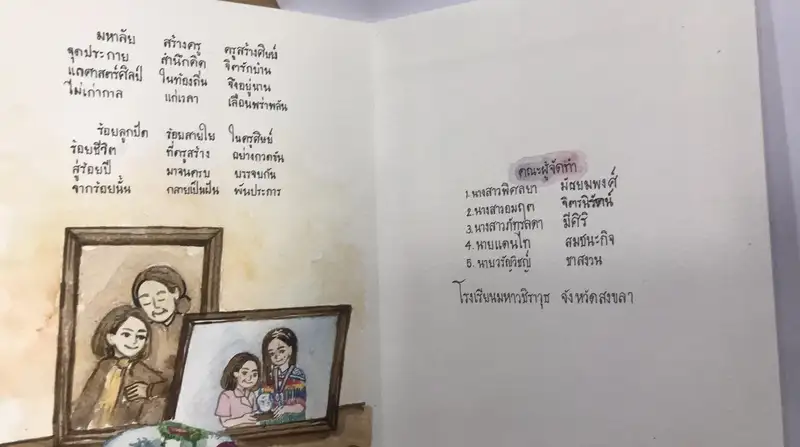 มหาลัย สร้างครู ครูสร้างศิษย์
จุดประกาย สำนึกคิด จิตรักบ้าน
แลศาสตร์ศิลป์ ในท้องถิ่น จึงอยู่นาน
ไม่เก่ากาล แก่เวลา เลือนพร่าพลัน
ร้อยลูกปัด ร้อยสายใย ในครูศิษย์
ร้อยชีวิต ที่ครูสร้าง อย่างกวดขัน
สู่ร้อยปี มาจนครบ บรรจบกัน
จากร้อยนั้น กลายเป็นผืน พันประการ
คณะผู้จัดทำ
1. นางสาวพิศลยา มัธยมพงศ์
2. นางสาวอมฤต จิตรนิรัตน์
3. นางสาวภัทรลดา มีศิริ
4. นายแดนไท สมชนะกิจ
5. นายวรัญวิชญ์ ชาสงวน
โรงเรียนมหาวชิราวุธ จังหวัดสงขลา